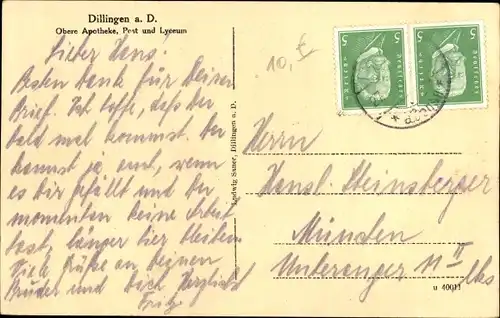 Dillingen a. D.
Obere Apotheke, Post und Lyceum
Lieber Hans.
Besten Dank für Deinen
Brief. Ich hoffe, daß Du
bald mal kommst. Du
kannst ja, wenn
es dir gefällt und Du
momentan keine Arbeit
hast, länger hier bleiben
Viele Grüße an Deinen
Bruder und Dich herzlichst
Fritz
Ludwig Sauer, Dillingen a. D.
10,-€
5 5
Deutsches Reich
Deutsches Reich
Herrn
Hansl Steinsberger
München
Unteranger 11 II
lks
u 40011